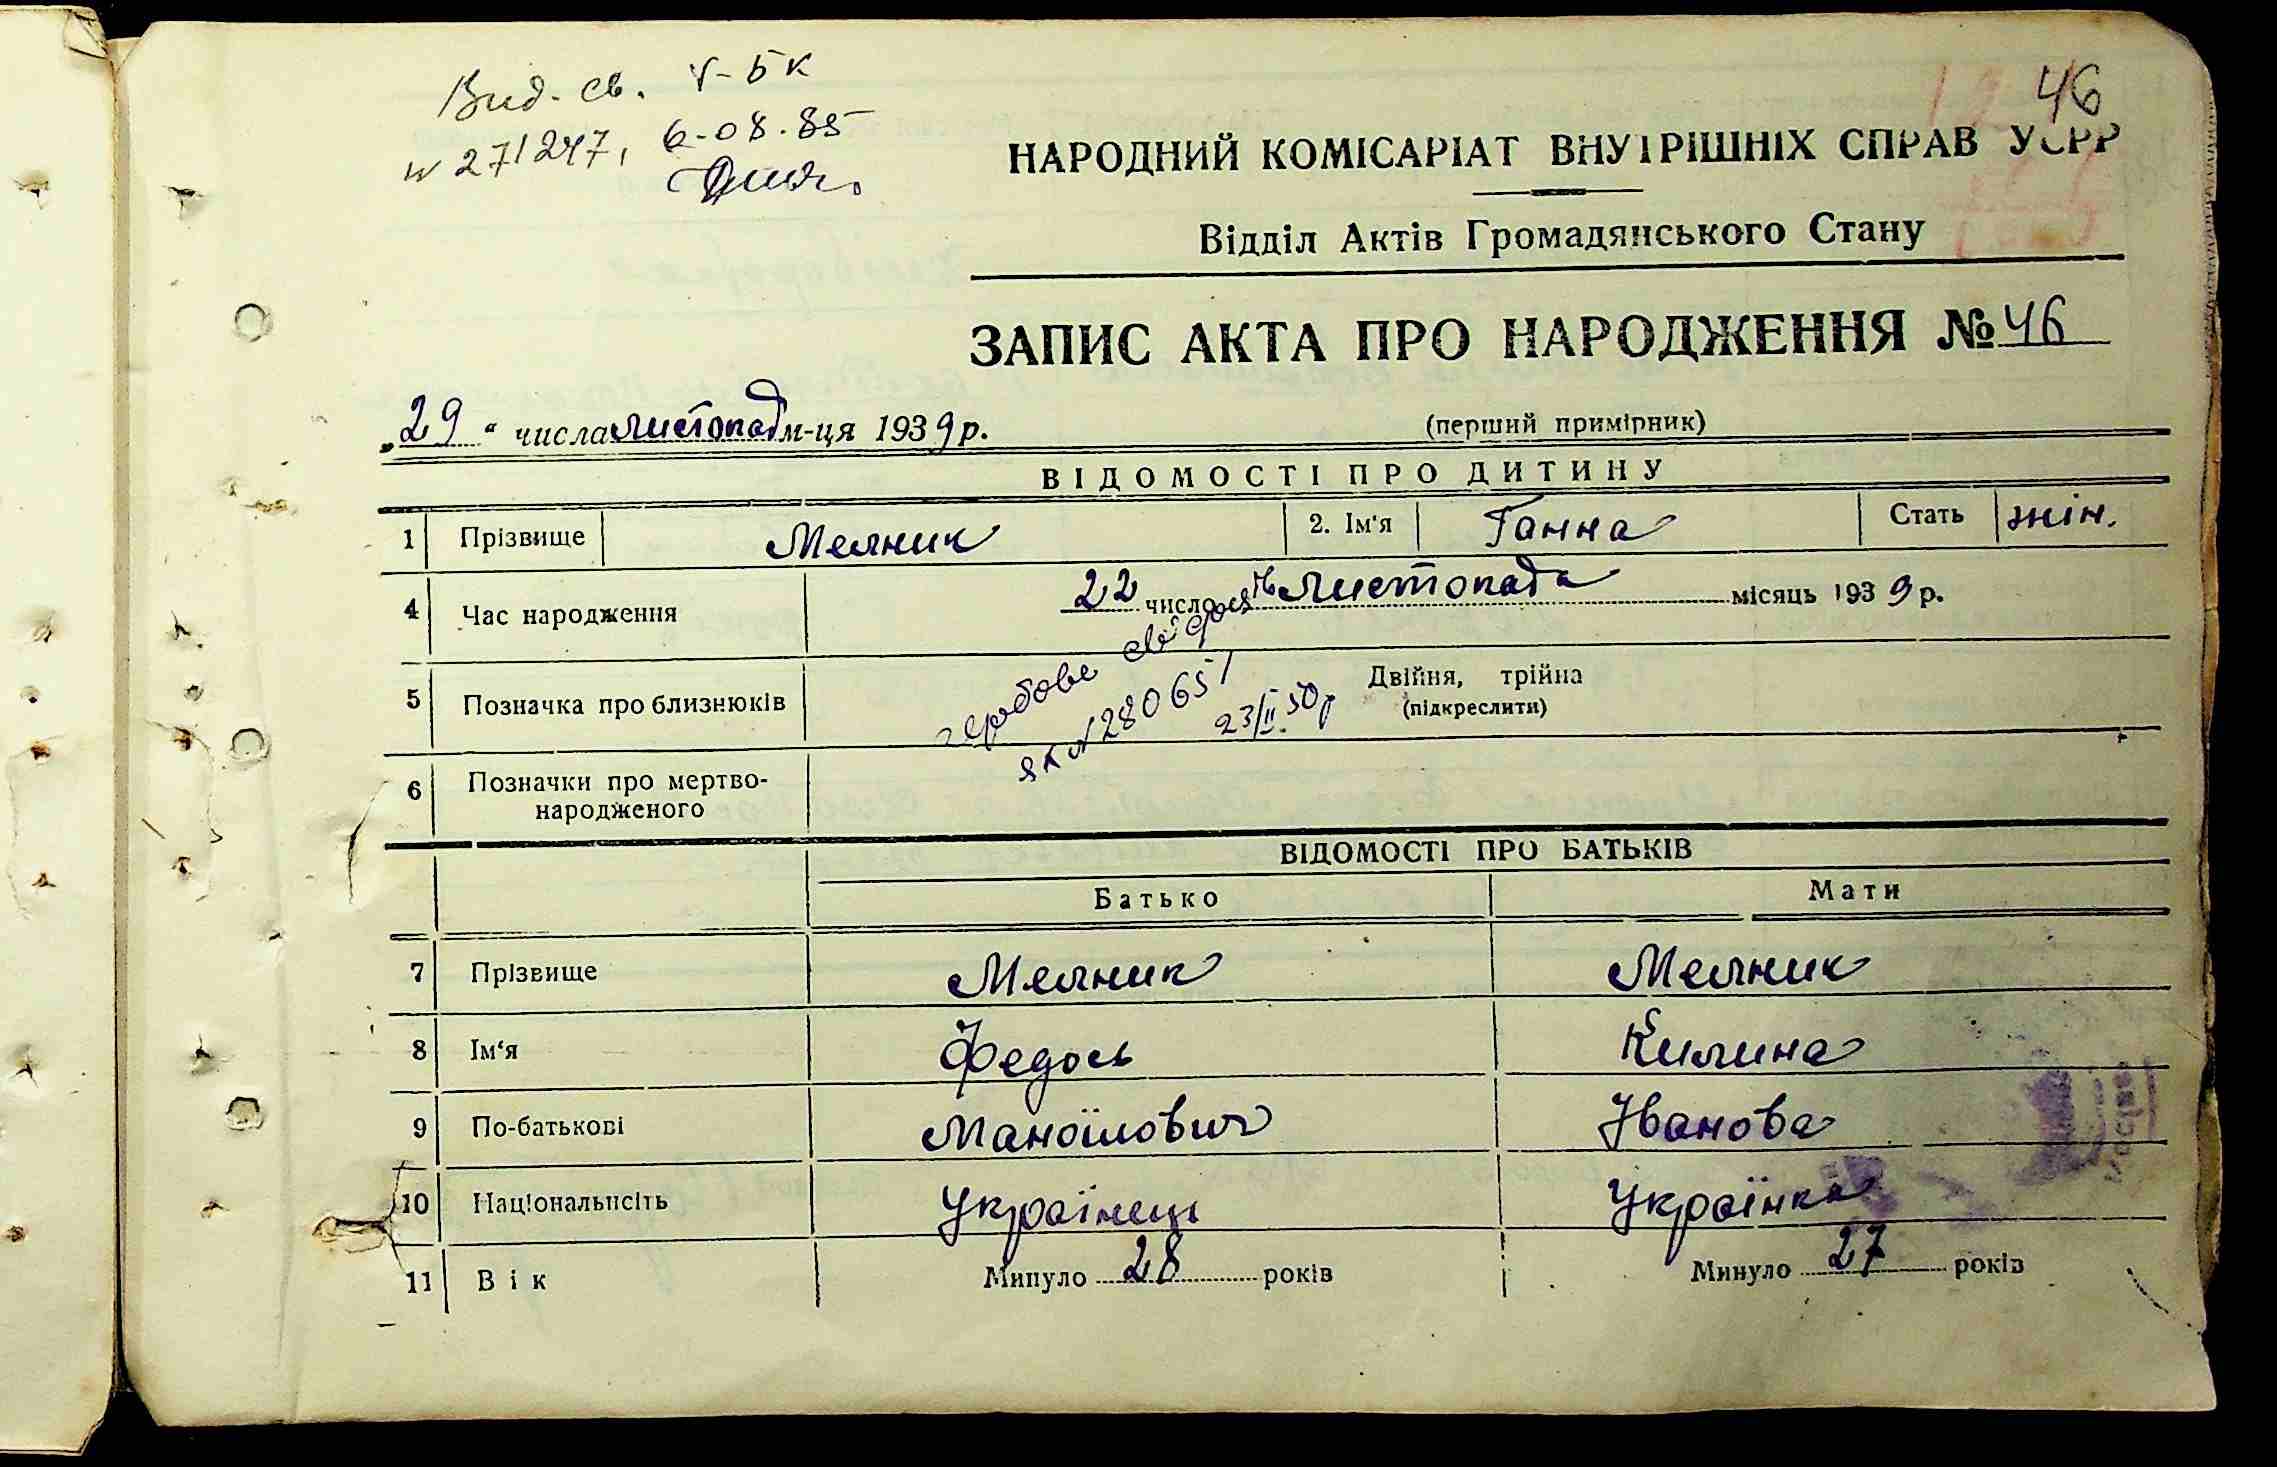 Вид. св. V-БК
№ 271247, 6-08.85
46
НАРОДНИЙ КОМІСАРІАТ ВНУТРІШНІХ СПРАВ УСРР
Відділ Актів Громадянського Стану
ЗАПИС АКТА ПРО НАРОДЖЕННЯ № 46
„29“ числа листопад м-ця 1939 р.
(перший примірник)
ВІДОМОСТІ ПРО ДИТИНУ
1 Прізвище Мелник 2. Ім'я Ганна Стать жін.
4 Час народження 22 число листопада місяць 1939 р.
гербове св.
ЯК № 280651
23/II.50р
5 Позначка про близнюків Двійня, трійна
(підкреслити)
6 Позначки про мертво-
народженого
ВІДОМОСТІ ПРО БАТЬКІВ
Батько Мати
7 Прізвище Мелник Мелник
8 Ім'я Федось Килина
9 По-батькові Маноїлович Іванова
10 Національність Українець Українка
11 Вік Минуло 28 років Минуло 27 років